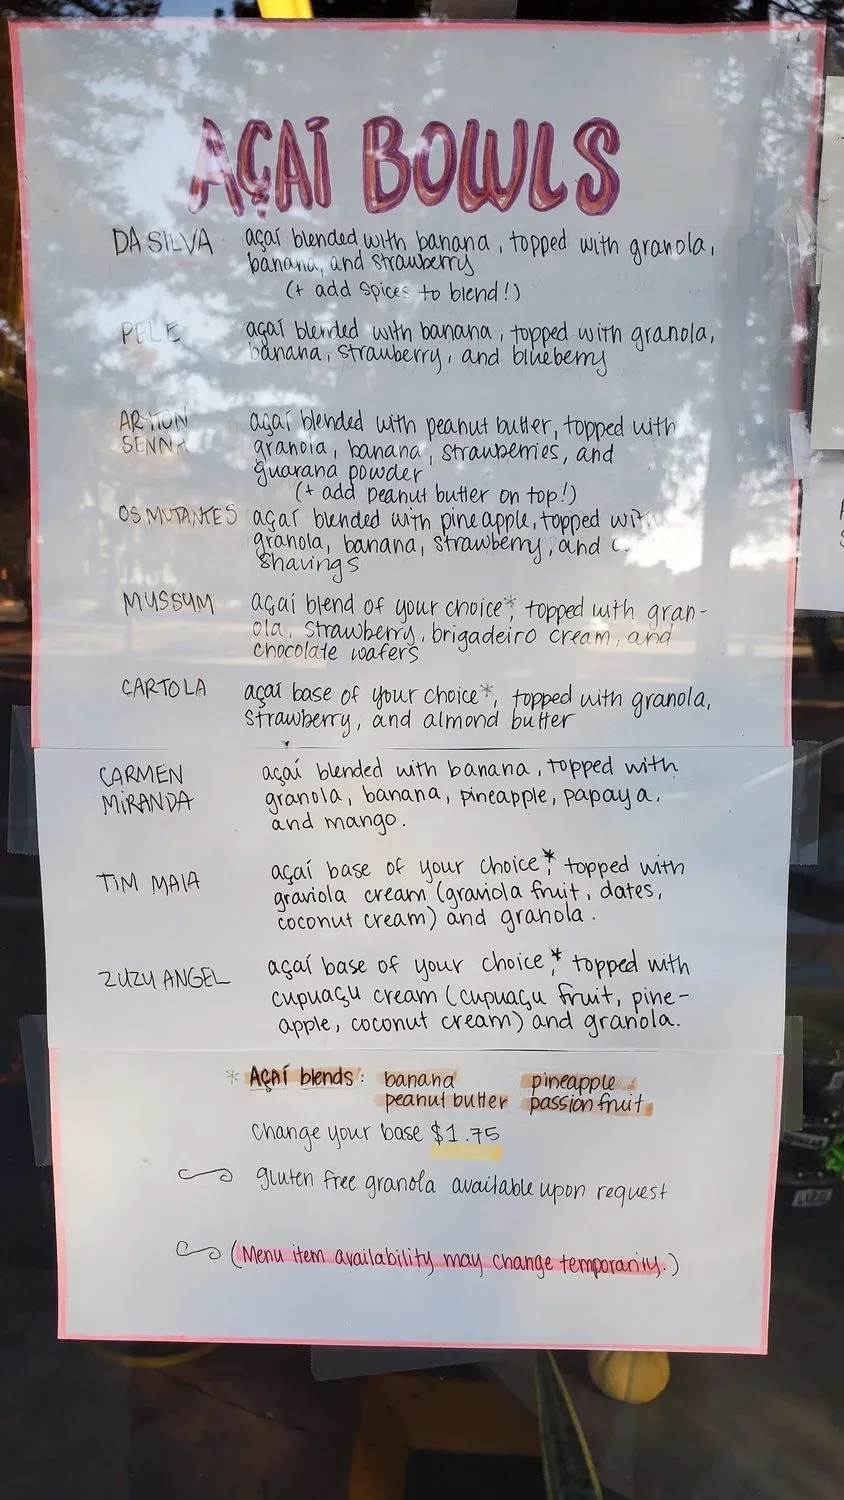 AÇAÍ BOWLS
DA SILVA açaí blended with banana, topped with granola,
banana, and strawberry
(+ add spices to blend!)
PELE açaí blended with banana, topped with granola,
banana, strawberry, and blueberry
ARYTON açaí blended with peanut butter, topped with
SENNA granola, banana, strawberries, and
guarana powder
(+ add peanut butter on top!)
OS MUTANTES açaí blended with pineapple, topped with
granola, banana, strawberry, and
shavings
MUSSUM açaí blend of your choice*, topped with gran-
ola, strawberry, brigadeiro cream, and
chocolate wafers
CARTOLA açaí base of your choice*, topped with granola,
strawberry, and almond butter
CARMEN açaí blended with banana, topped with
MIRANDA granola, banana, pineapple, papaya,
and mango.
TIM MAIA açaí base of your choice,* topped with
graviola cream (graviola fruit, dates,
coconut cream) and granola.
ZUZU ANGEL açaí base of your choice,* topped with
cupuaçu cream (cupuaçu fruit, pine-
apple, coconut cream) and granola.
* AÇAÍ blends: banana pineapple
peanut butter passion fruit
change your base $1.75
gluten free granola available upon request
(Menu item availability may change temporarily.)